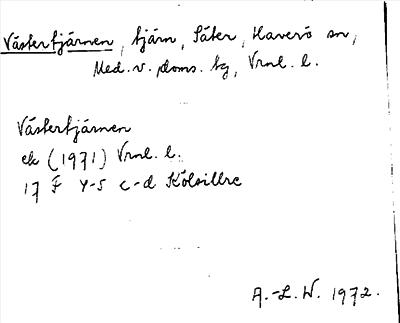 Västertjärnen, tjärn, Säter, Haverö sn,
Med. v. doms. tg, Vrnl. l.
Västertjärnen
ek (1971) Vrnl. l.
17 F 4-5 c-d Kölsillre
A.-L. W. 1972.